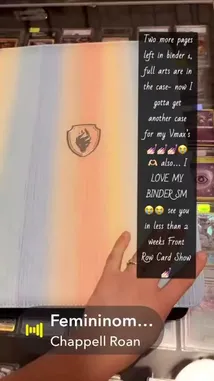 Two more pages
left in binder 1,
full arts are in
the case- now I
gotta get
another case
for my Vmax's
💅🏻💅🏻💅🏻🥹
🫶🏻 also... I
LOVE MY
BINDER SM
😭😭 see you
in less than 2
weeks Front
Row Card Show
💅🏻
Femininom...
Chappell Roan